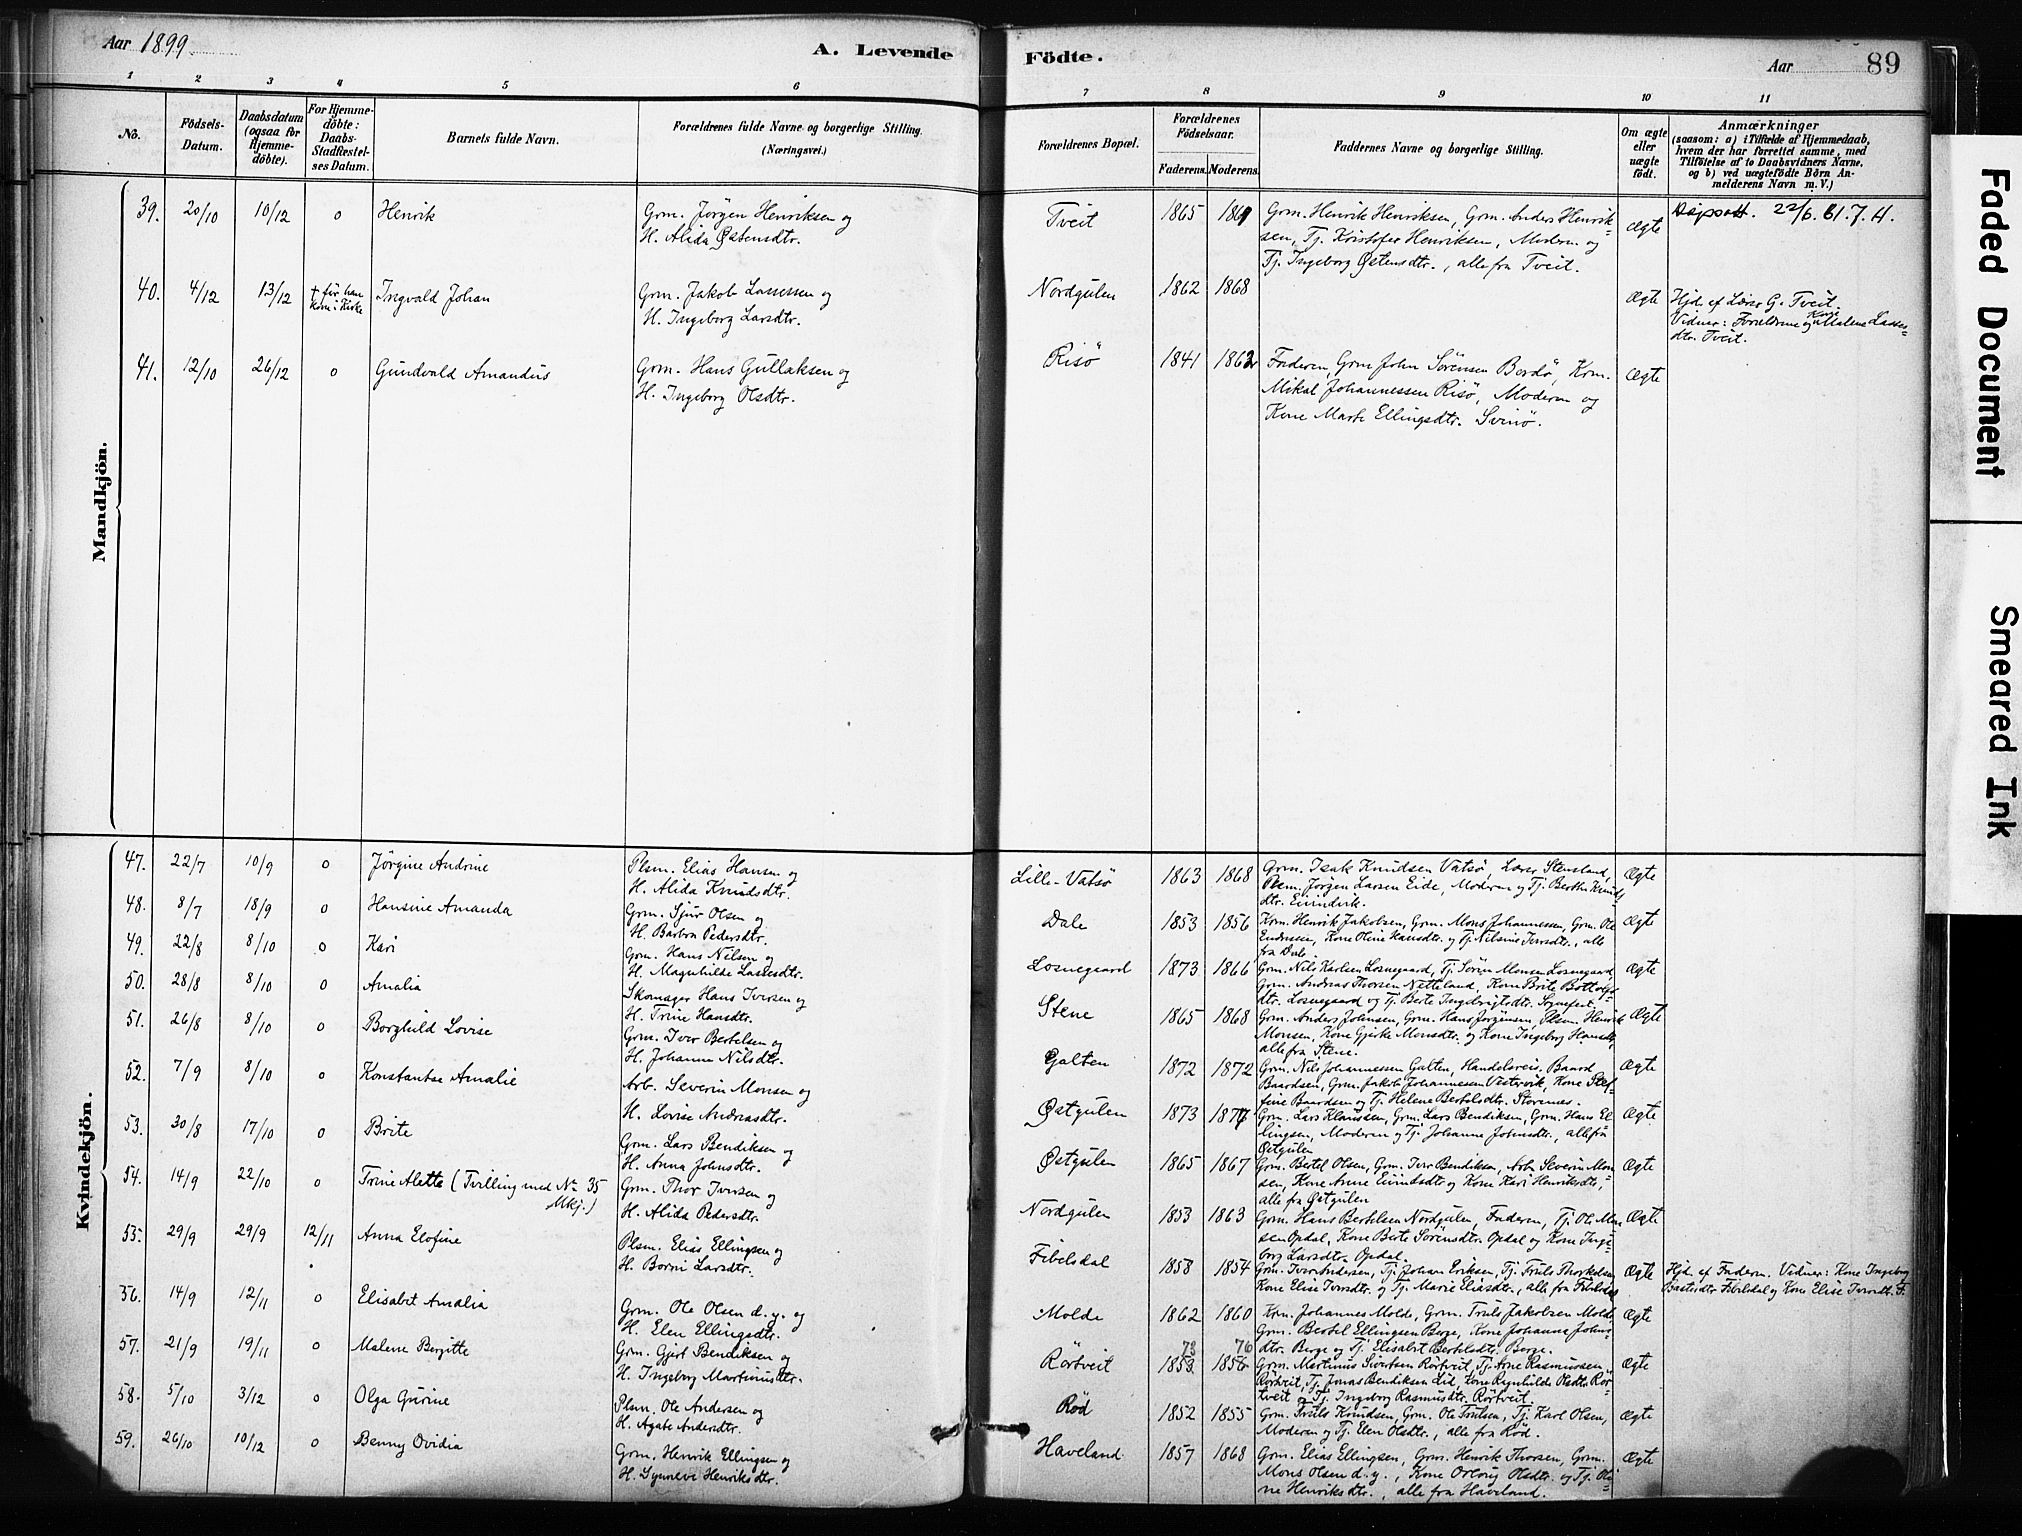 Aar 1899.
A. Levende Födte.
Aar
89
1 2 3 4 5 6 7 8 9 10 11
No.
Födsels-Datum.
Daabsdatum (ogsaa for Hjemme-döbte).
For Hjemme-döbte: Daabs-Stadfæstel-ses Datum.
Barnets fulde Navn.
Forældrenes fulde Navne og borgerlige Stilling. (Næringsvei.)
Forældrenes Bopæl.
Forældrenes Födselsaar.
Faderens. Moderens.
Faddernes Navne og borgerlige Stilling.
Om ægte eller uægte födt.
Anmærkninger
(saasom: a) i Tilfælde af Hjemmedaab,
hvem der har forrettet samme, med
Tilföielse af to Daabsvidners Navne,
og b) ved uægtefödte Börn An-
melderens Navn m. V.)
Mandkjön.
39. 20/10 10/12 o Henrik
Grm. Jørgen Henriksen og
H. Alida Østensdtr.
Tveit 1865
Grm. Henrik Henriksen, Grm. Anders Henrik=
sen, Tj. Kristofer Henriksen, Modern og
Tj. Ingeborg Østensdtr., alle fra Tveit.
Ægte
22/6. 61. 7. H.
40. 4/12 13/12 † før han
kom i Kirke
Ingvald Johan
Grm. Jakob Lassesen og
H. Ingeborg Larsdtr.
Nordgulen 1862 1868
Ægte
Hjd. af Lærer G. Tveit.
Vidner: Forældrene og Kone Malene Lasses=
dtr. Tveit.
41. 12/10 26/12 o Gundvald Amandus
Grm. Hans Gullaksen og
H. Ingeborg Olsdtr.
Risö 1841
Faderen, Grm John Sörensen Bordö, Krm.
Mikal Johannessen Risö, Moderen og
Kone Marte Ellingsdtr. Svinö.
Ægte
Kvindekjön.
47. 22/7 10/9 o Jörgine Andrine
Plsm. Elias Hansen og
H. Alida Knudsdtr.
Lille-Vatsö 1863 1868
Grm. Isak Knudsen Vatsø, Lærer Stensland,
Plsm. Jörgen Larsen Eide, Moderen og Tj. Berthe Knuds
dtr. Eivindvik.
Ægte
48. 8/7 18/9 o Hansine Amanda
Grm. Sjur Olsen og
H. Barbra Pedersdtr.
Dale 1853 1856
Krm. Henrik Jakobsen, Grm. Mons Johannessen, Grm. Ole
Endresen, Kone Oline Hansdtr. og Tj. Nilsine Iversdtr., alle
fra Dale.
Ægte
49. 22/8 8/10 o Kari
Grm. Hans Nilsen og
H. Magnhilde Lassesdtr.
Losnegaard 1873 1866
Grm. Nils Karlsen Losnegaard, Tj. Sören Monsen Losnegaard
Grm. Andreas Thorsen Netteland, Kone Brite Bottolfs
dtr. Losnegaard og Tj. Berte Ingebrigtsdtr. Sognefest.
Ægte
50. 28/8 8/10 o Amalia
Skomager Hans Iversen og
H. Trine Hansdtr.
Stene 1865 1868
Grm. Anders Johnsen, Grm. Hans Jörgensen, Plsm. Henrik
Monsen, Kone Gjertie Monsdtr. og Kone Ingeborg Hansdtr,
alle fra Stene.
Ægte
51. 26/8 8/10 o Borghild Lovise
Grm. Iver Bertelsen og
H. Johanne Nilsdtr.
Galten 1872 1872
Grm. Nils Johannessen Galten, Handelsreis. Baard
Baardsen, Grm. Jakob Johannesen Vestrvik, Kone Stef
fine Baardsen og Tj. Helene Bertelsdtr. Storenes.
Ægte
52. 7/9 8/10 o Konstantse Amalie
Arb. Severin Monsen og
H. Lovise Andreasdtr.
Østgulen 1873
Grm. Lars Klaussen, Grm. Lars Bendiksen, Grm. Hans El=
lingsen, Moderen og Tj. Johanne Johnsdtr., alle fra
Østgulen
Ægte
53. 30/8 17/10 o Brite
Grm. Lars Bendiksen og
H. Anna Johnsdtr.
Østgulen 1865 1867
Grm. Bertel Olsen, Grm. Iver Bendiksen, Arb. Severin Mon
sen, Kone Anne Eivindsdtr og Kone Kari Henriksdtr,
alle fra Østgulen
Ægte
54. 14/9 22/10 o Trine Alette (Tvilling med No 35
Mkj.)
Grm. Thor Iversen og
H. Alida Pedersdtr.
Nordgulen 1853 1863
Grm. Hans Bertelsen Nordgulen, Faderen, Tj. Ole Mon
sen Opdal, Kone Berte Sörensdtr. Opdal og Kone Inge=
borg Larsdtr. Opdal.
Ægte
55. 29/9 29/9 12/11 Anna Elofine
Plsm. Elias Ellingsen og
H. Borni Larsdtr.
Fibelsdal 1858 1854
Grm. Iver Andersen, Tj. Johan Eriksen, Tj. Truls Thorkelsen
Kone Elise Iversdtr. og Tj. Marie Eliasdtr., alle fra Fibelsdal
Ægte
Hjd. af Faderen. Vidner: Kone Ingeborg
Bastesdtr Fibelsdal og Kone Elise Iversdtr. F.
56. 14/9 12/11 o Elisabet Amalia
Grm. Ole Olsen d. y. og
H. Elen Ellingsdtr.
Molde 1862 1860
Krm. Johannes Molde, Grm. Truls Jakobsen Molde
Grm. Bertel Ellingsen Berge, Kone Johanna Johns
dtr. Berge og Tj. Elisabet Bertelsdtr. Berge.
Ægte
57. 21/9 19/11 o Malene Bergitte
Grm. Gjert Bendiksen og
H. Ingeborg Martinusdtr.
Rörtveit 73 1853 76 1856
Grm. Martinus Sivertsen Rörtveit, Tj. Arne Rasmussen
Rörtveit, Tj. Jonas Bendiksen Lid, Kone Ragnhilde Olsdtr. Rör
tveit og Tj. Ingeborg Rasmusdtr. Rörtveit.
Ægte
58. 5/10 3/12 o Olga Gurine
Plsm. Ole Andersen og
H. Agate Andersdtr.
Röd 1852 1855
Grm. Truls Knudsen, Grm. Ole Trulsen, Tj. Karl Olsen,
Moderen og Tj. Elen Olsdtr., alle fra Röd.
Ægte
59. 26/10 10/12 o Benny Ovidia
Grm. Henrik Ellingsen og
H. Synneve Henriksdtr.
Haveland 1857 1868
Grm. Elias Ellingsen, Grm. Henrik Thorsen, Grm.
Mons Olsen d. y., Kone Orlaug Olsdtr. og Tj. Oli
ne Henriksdtr., alle fra Haveland.
Ægte
Faded Document
Smeared Ink